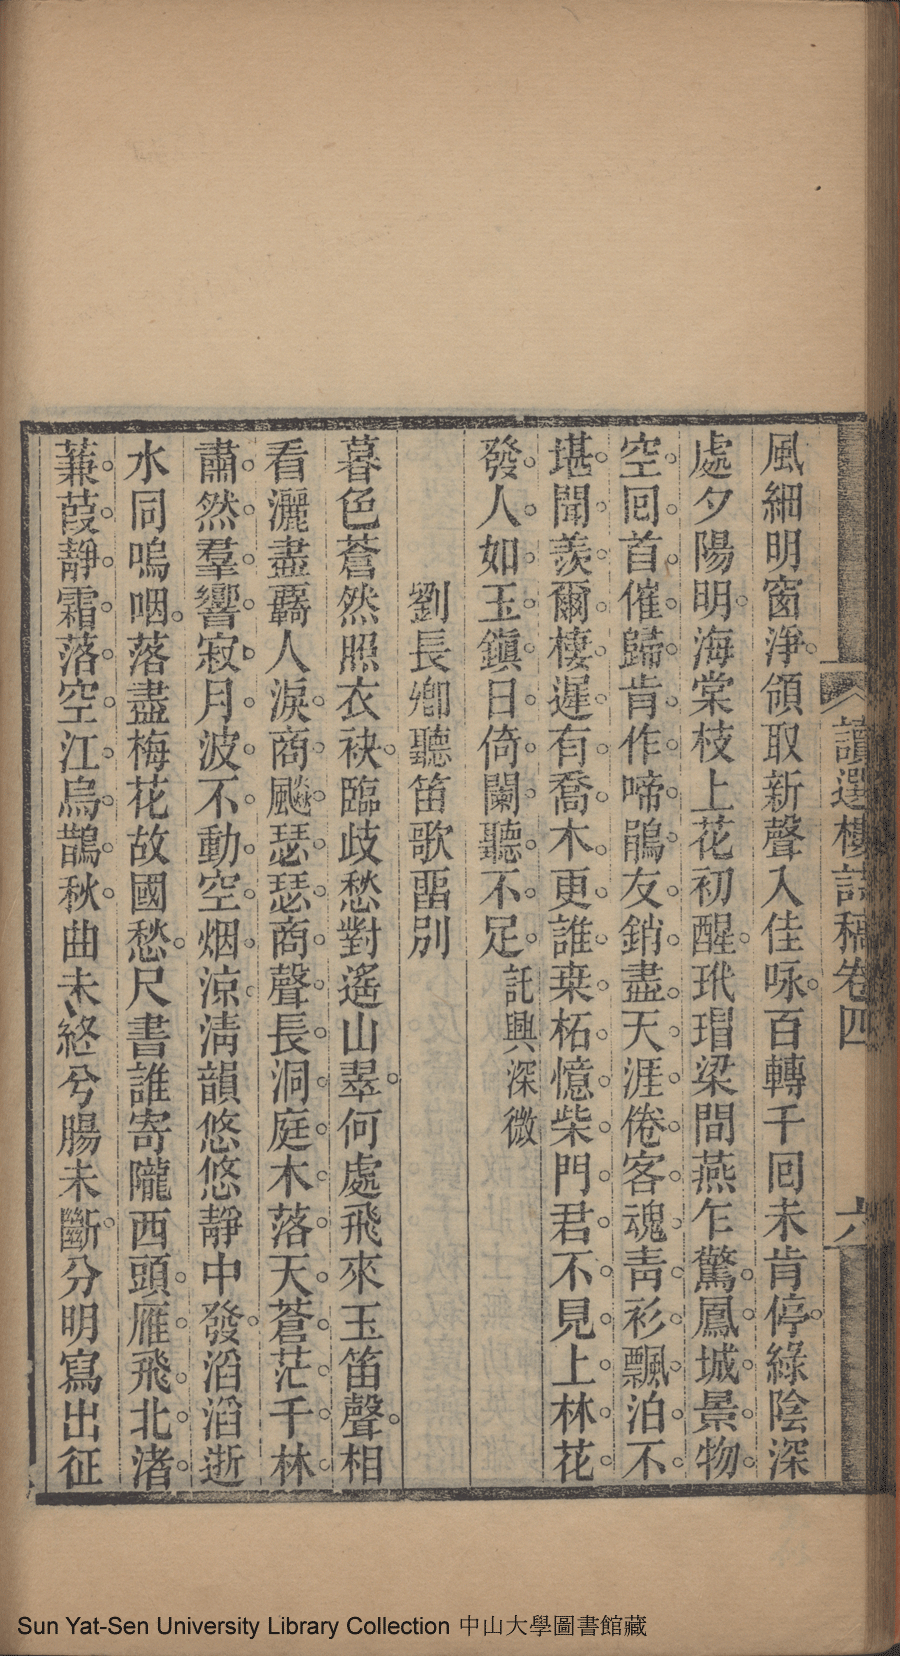 讀選樓詩稿卷四
六
風細明窗淨領取新聲入佳咏百轉千回未肯停綠陰深
處夕陽明海棠枝上花初醒玳瑁梁間燕乍驚鳳城景物
空回首催歸肯作啼鵑友銷盡天涯倦客魂靑衫飄泊不
堪聞羨爾棲遲有喬木更誰桒柘憶柴門君不見上林花
發人如玉鎭日倚闌聽不足託興深微
劉長卿聽笛歌畱別
暮色蒼然照衣袂臨歧愁對遙山翠何處飛來玉笛聲相
看灑盡覊人淚商飈瑟瑟商聲長洞庭木落天蒼茫千林
肅然羣響寂月波不動空烟涼淸韻悠悠靜中發滔滔逝
水同嗚咽落盡梅花故國愁尺書誰寄隴西頭雁飛北渚
蒹葭靜霜落空江烏鵲秋曲未終兮腸未斷分明寫出征
Sun Yat-Sen University Library Collection 中山大學圖書館藏